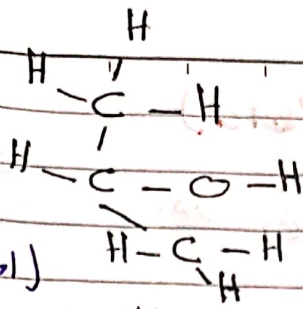 H
H - C - H
H - C - O - H
H - C - H
H